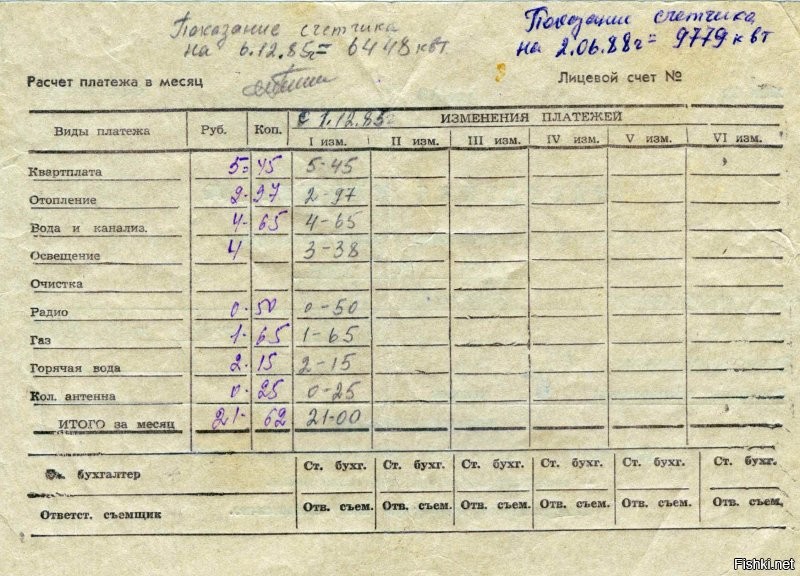 Показание счетчика
на 6.12.85г= 6448 квт
Показании счетчика
на 2.06.88г= 9779 квт
Расчет платежа в месяц
Лицевой счет №
Виды платежа Руб. Коп. С 1.12.85г ИЗМЕНЕНИЯ ПЛАТЕЖЕЙ
I изм. II изм. III изм. IV изм. V изм. VI изм.
Квартплата 5= 45 5-45
Отопление 2- 97 2-97
Вода и канализ. 4- 65 4-65
Освещение 4 3-38
Очистка
Радио 0- 50 0-50
Газ 1- 65 1-65
Горячая вода 2- 15 2-15
Кол. антенна 0- 25 0-25
ИТОГО за месяц 21- 62 21-00
бухгалтер Ст. бухг. Ст. бухг. Ст. бухг. Ст. бухг. Ст. бухг. Ст. бухг.
Ответст. съемщик Отв. съем. Отв. съем. Отв. съем. Отв. съем. Отв. съем. Отв. съем.
Fishki.net